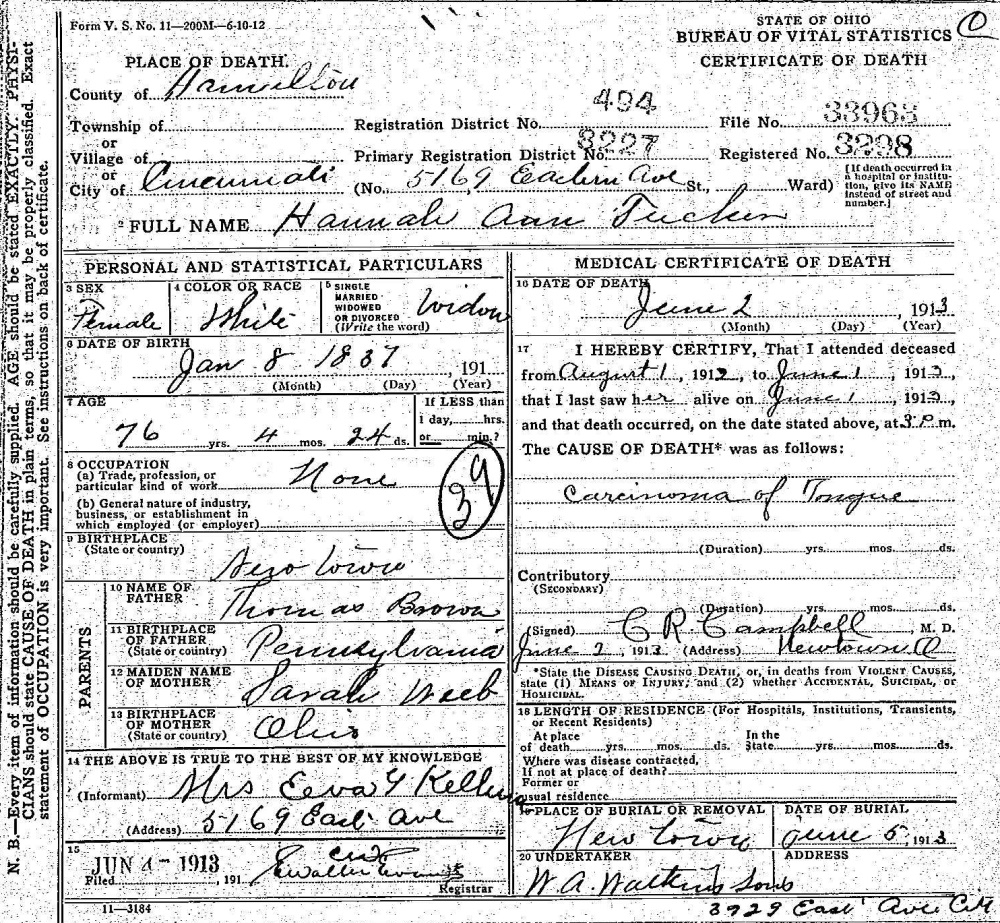 Form V. S. No. 11—200M—6-10-12
STATE OF OHIO
BUREAU OF VITAL STATISTICS
CERTIFICATE OF DEATH
PLACE OF DEATH.
County of Hamilton
Township of
or
Village of
or
City of Cincinnati
Registration District No. 494
File No. 33963
Primary Registration District No. 8227
Registered No. 3298
(No. 5169 Eastern Ave St., Ward)
[If death occurred in
a hospital or institu-
tion, give its NAME
instead of street and
number.]
2 FULL NAME Hannah Ann Tucker
PERSONAL AND STATISTICAL PARTICULARS
3 SEX
Female
4 COLOR OR RACE
White
5 SINGLE
MARRIED
WIDOWED
OR DIVORCED
(Write the word)
Widow
6 DATE OF BIRTH
Jan 8 1837, 191
(Month) (Day) (Year)
7 AGE
76 yrs. 4 mos. 24 ds.
If LESS than
1 day, hrs.
or min.?
8 OCCUPATION
(a) Trade, profession, or
particular kind of work None
(b) General nature of industry,
business, or establishment in
which employed (or employer)
39
9 BIRTHPLACE
(State or country)
New town
PARENTS
10 NAME OF
FATHER
Thomas Brown
11 BIRTHPLACE
OF FATHER
(State or country)
Pennsylvania
12 MAIDEN NAME
OF MOTHER
Sarah Webb
13 BIRTHPLACE
OF MOTHER
(State or country)
Ohio
14 THE ABOVE IS TRUE TO THE BEST OF MY KNOWLEDGE
(Informant) Mrs Eeva
(Address) 5169 East Ave
15
Filed JUN 4- 1913, 191
Registrar
11—3184
MEDICAL CERTIFICATE OF DEATH
16 DATE OF DEATH
June 2, 1913
(Month) (Day) (Year)
17 I HEREBY CERTIFY, That I attended deceased
from August 1, 1912, to June 1, 1913,
that I last saw her alive on June 1, 1913,
and that death occurred, on the date stated above, at 3 P. m.
The CAUSE OF DEATH* was as follows:
Carcinoma of Tongue
(Duration) yrs. mos. ds.
Contributory
(SECONDARY)
(Duration) yrs. mos. ds.
(Signed) C R Campbell, M. D.
June 2, 1913 (Address) Newtown O
*State the DISEASE CAUSING DEATH, or, in deaths from VIOLENT CAUSES,
state (1) MEANS OF INJURY; and (2) whether ACCIDENTAL, SUICIDAL, or
HOMICIDAL.
18 LENGTH OF RESIDENCE (For Hospitals, Institutions, Transients,
or Recent Residents)
At place
of death yrs. mos. ds.
In the
State yrs. mos. ds.
Where was disease contracted,
If not at place of death?
Former or
usual residence
19 PLACE OF BURIAL OR REMOVAL
New town
DATE OF BURIAL
June 5, 1913
20 UNDERTAKER
W. A. Watkins Sons
ADDRESS
3729 East Ave
N. B.—Every item of information should be carefully supplied. AGE should be stated EXACTLY. PHYSI-
CIANS should state CAUSE OF DEATH in plain terms, so that it may be properly classified. Exact
statement of OCCUPATION is very important. See instructions on back of certificate.